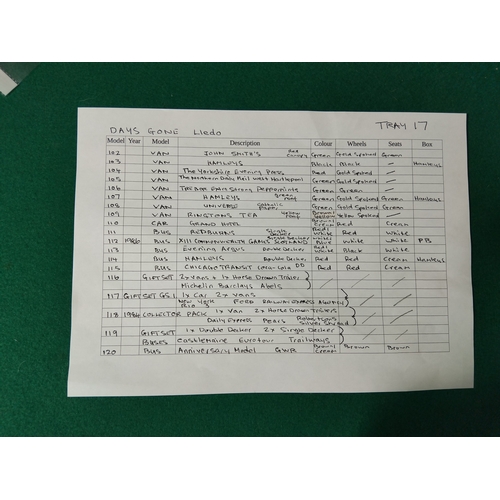 DAYS GONE Lledo TRAY 17
Model Year Description Colour Wheels Seats Box
102 VAN JOHN SMITH'S Red Canopy Green Gold Spoked Green
103 VAN HAMLEYS Black Black Hamleys
104 VAN The Yorkshire Evening Press Red Gold Spoked
105 VAN The Northern Daily Mail West Hartlepool Green Gold Spoked
106 VAN Extra Strong Peppermints Green Green
107 VAN HAMLEYS green roof Green Gold Spoked Hamleys
108 VAN UNIVERSE Catholic Paper Green Gold Spoked
109 VAN RINGTONS TEA yellow roof Brown/ Yellow Spoked
110 CAR GRAND HOTEL Brown/ Cream Red Cream
111 BUS REDBURNS Single Decker Red/ White Red White
112 1986 BUS XIII COMMONWEALTH GAMES SCOTLAND Single Decker White/ Blue White White PB
113 BUS Evening Argus Double Decker Red/ White Black White
114 BUS HAMLEYS Double Decker Red Red Cream Hamleys
115 BUS CHICAGO TRANSIT Coca-Cola DD Red Red Cream
116 GIFT SET 2x Vans + 1x Horse Drawn Trailer
Michelin Barclays Abels
117 GIFT SET GS1 1x Car 2x Vans
New York Rio FORD RAILWAY EXPRESS
118 1984 COLLECTOR PACK 1x Van 2x Horse Drawn Trailers
Daily Express Pears Robertsons Silver Shread
119 GIFT SET 1x Double Decker 2x Single Decker
BUSES Castlemaine Eurotour Trailways
120 BUS Anniversary Model GWR Brown/ Cream Brown Brown